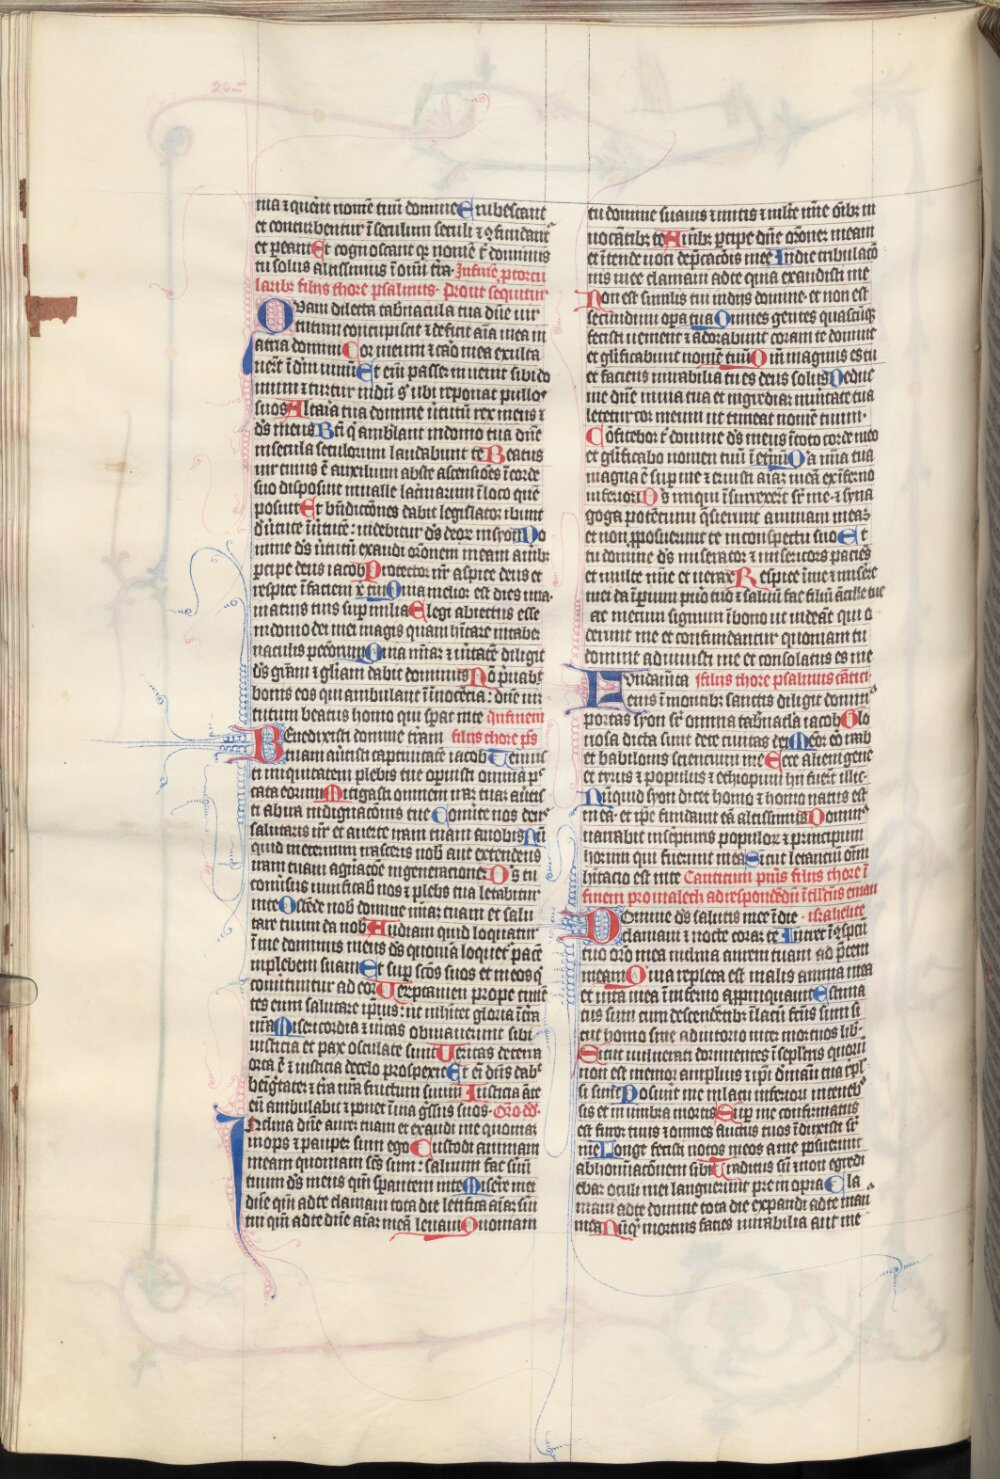 nia ⁊ querũt nomẽ tuũ domine Erubescant
et conturbentur ĩ seculum seculi ⁊ ꝯfundant᷑
et pereant Et cognoscant qꝛ nomẽ t̃ dominus
tu solus altissimus ĩ om̃i tr̃a Infinẽ ꝓ torcu
laribꝫ filijs chore psalmus
Quam dilecta tab̃nacula tua dñe uir
tutum concupiscit ⁊ deficit aĩa mea in
atria domini Cor meum ⁊ caro mea exulta
uerũt ĩ dm̃ uiuũ Et em̃ passer inuenit sibi do
mum ⁊ turtur nidũ sᷣ ubi reponat pullos
suos Altaria tua domine ũtutũ rex meus ⁊
ds̃ meus Bt̃i q̃ habitant in domo tua dñe
in secula seculorum laudabunt te Beatus
uir cuius ẽ auxilium abs te ascensiões ĩ corde
suo disposuit in ualle lac̃marum ĩ loco quẽ
posuit Et bñdictiones dabit legislator ibunt
de ũtute ĩ ũtutẽ: uidebitur ds̃ deorꝫ in syon Do
mine ds̃ ũtutũ exaudi or̃onem meam auribꝫ
percipe deus iacob Protector nr̃ aspice deus et
respice ĩ faciem x̃ tui Quia melior est dies una
in atrijs tuis sup̱ milia Elegi abiectus esse
in domo dei mei magis quam hĩtare in tab̃
naculis peccatorum Quia miãꝫ ⁊ ũitatẽ diligit
ds̃ gr̃am ⁊ gl̃iam dabit dominus Nõ p̃uabit
bonis eos qui ambulant ĩ ĩnocẽtia: dñe uir
tutum beatus homo qui sperat in te In finem
Benedixisti domine terram filijs chore ps̃
tuam auertisti captiuitatẽ iacob Remisi
ti iniquitatem plebis tue operuisti omnia pec
cata eorum Mitigasti omnem iram tuam auertis
ti ab ira indignacõnis tue Conuerte nos deus
salutaris nr̃ et auerte iram tuam a nobis Nũ
quid in eternum irasceris nob̃ aut extendens
iram tuam a generacõne ĩ generationẽ Ds̃ tu
conuersus uiuificab̃ nos ⁊ plebs tua letabitur
in te Ostẽde nob̃ domine miãꝫ tuam et salu
tare tuum da nob̃ Audiam quid loquatur
ĩ me dominus meus ds̃ quoniã loquet᷑ pacẽ
in plebem suam Et sup̱ scõs suos et in eos q̃
conuertuntur ad cor Uerũptamen prope timẽ
tes eum salutare ip̃ius: ut inhĩtet gloria ĩ tr̃a
nr̃a Misericordia ⁊ ũitas obuiauerunt sibi
iusticia et pax osculate sunt Ueritas de terra
orta ẽ ⁊ iusticia de celo prospexit Et em̃ dñs dab̃
benignitatẽ: ⁊ tr̃a nr̃a dabit fructum suum Iusticia ãte
eũ ambulabit ⁊ ponet ĩ uia gr̃ssus suos Or̃o dd̃
Inclina dñe aurem tuam et exaudi me quoniã
inops ⁊ pauper sum ego Custodi animam
meam quoniam scs̃ sum: saluum fac seruũ
tuum ds̃ meus qm̃ sperantem in te Misere mei
dñe qm̃ ad te clamaui tota die letifica aĩam serui
tui qm̃ ad te dñe aĩaꝫ meã leuaui Quoniam
tu domine suauis ⁊ mitis ⁊ multe mĩe om̃ibꝫ in
uocãtibꝫ te Auribꝫ percipe dñe or̃onem meam
et ĩtende uoci dep̃cacõis mee In die tribulacõ
nis mee clamaui ad te quia exaudisti me
Non est similis tui in dijs domine et non est
secundum opera tua Omnes gentes quascũqꝫ
fecisti uenient ⁊ adorabunt coram te domine
et gl̃ificabunt nomẽ tuũ Qm̃ magnus es tu
et faciens mirabilia tu es deus solus Deduc
me dñe in uia tua et ingrediar in ũitate tua
letetur cor meum ut timeat nomẽ tuum
Cõfitebor t̃ domine ds̃ meus ĩ toto corde meo
et gl̃ificabo nomen tuũ ĩ et̃nũ Q̃a mĩa tua
magna ẽ sup̱ me ⁊ eruisti aĩaꝫ meã ex ĩferno
inferiori Ds̃ iniqui ĩsurrexerũt sr̃ me ⁊ syna
goga potẽtium q̃sierunt animam meã
et non ꝓposuerunt te in conspectu suo Et
tu domine ds̃ miserator ⁊ misericors paciẽs
et multe mĩe et uerax Respice ĩ me ⁊ misere
mei da ĩperium puero tuo ⁊ saluũ fac filiũ ãcille tue
Fac mecum signum ĩ bono ut uideãt qui o
derunt me et confundantur quoniam tu
domine adiuuisti me et consolatus es me
Fundamẽta filijs chore psalmus cãtici
eius ĩ montibꝫ sanctis diligit dominus
portas syon sr̃ omnia tab̃nacl̃a iacob Glo
riosa dicta sunt de te ciuitas dei Memor ero raab
et babilonis scientium me Ecce alienigene
et tyrus ⁊ populus ⁊ ethiopum hij fuerũt illic
Nũquid syon dicet homo ⁊ homo natus est
in ea et ip̃e fundauit eã altissimus Dominus
narrabit in sc̃pturis populorꝫ ⁊ principum
horum qui fuerunt in ea Sicut letanciũ om̃i
hĩtacio est in te Canticum psm̃s filijs chore ĩ
finem pro maleth ad respondẽdũ ĩtellcũs eman
Domine ds̃ salutis mee ĩ die israhelite
clamaui ⁊ nocte coraꝫ te Intret ĩ ꝯspectu
tuo or̃o mea inclina aurem tuam ad p̃cem
meam Quia repleta est malis anima mea
et uita mea ĩ inferno appropinquauit Estima
tus sum cum descendentibꝫ ĩ lacũ factus sum si
cut homo sine adiutorio inter mortuos liber
Sicut uulnerati dormientes ĩ sepulcris quorũ
non est memor amplius ⁊ ip̃i de manu tua repl̃
si sunt Posuerunt me in lacu inferiori in tenebꝛo
sis et in umbra mortis Sup̱ me confirmatus
est furor tuus ⁊ omnes fluctus tuos ĩduxisti sr̃
me Longe fecisti notos meos a me posuerunt
abhominacõnem sibi Traditus sũ et non egredi
ebar oculi mei languerunt pre inopia Cla
maui ad te domine tota die expandi ad te man
meas Nũqͥd mortuis facies mirabilia aut me